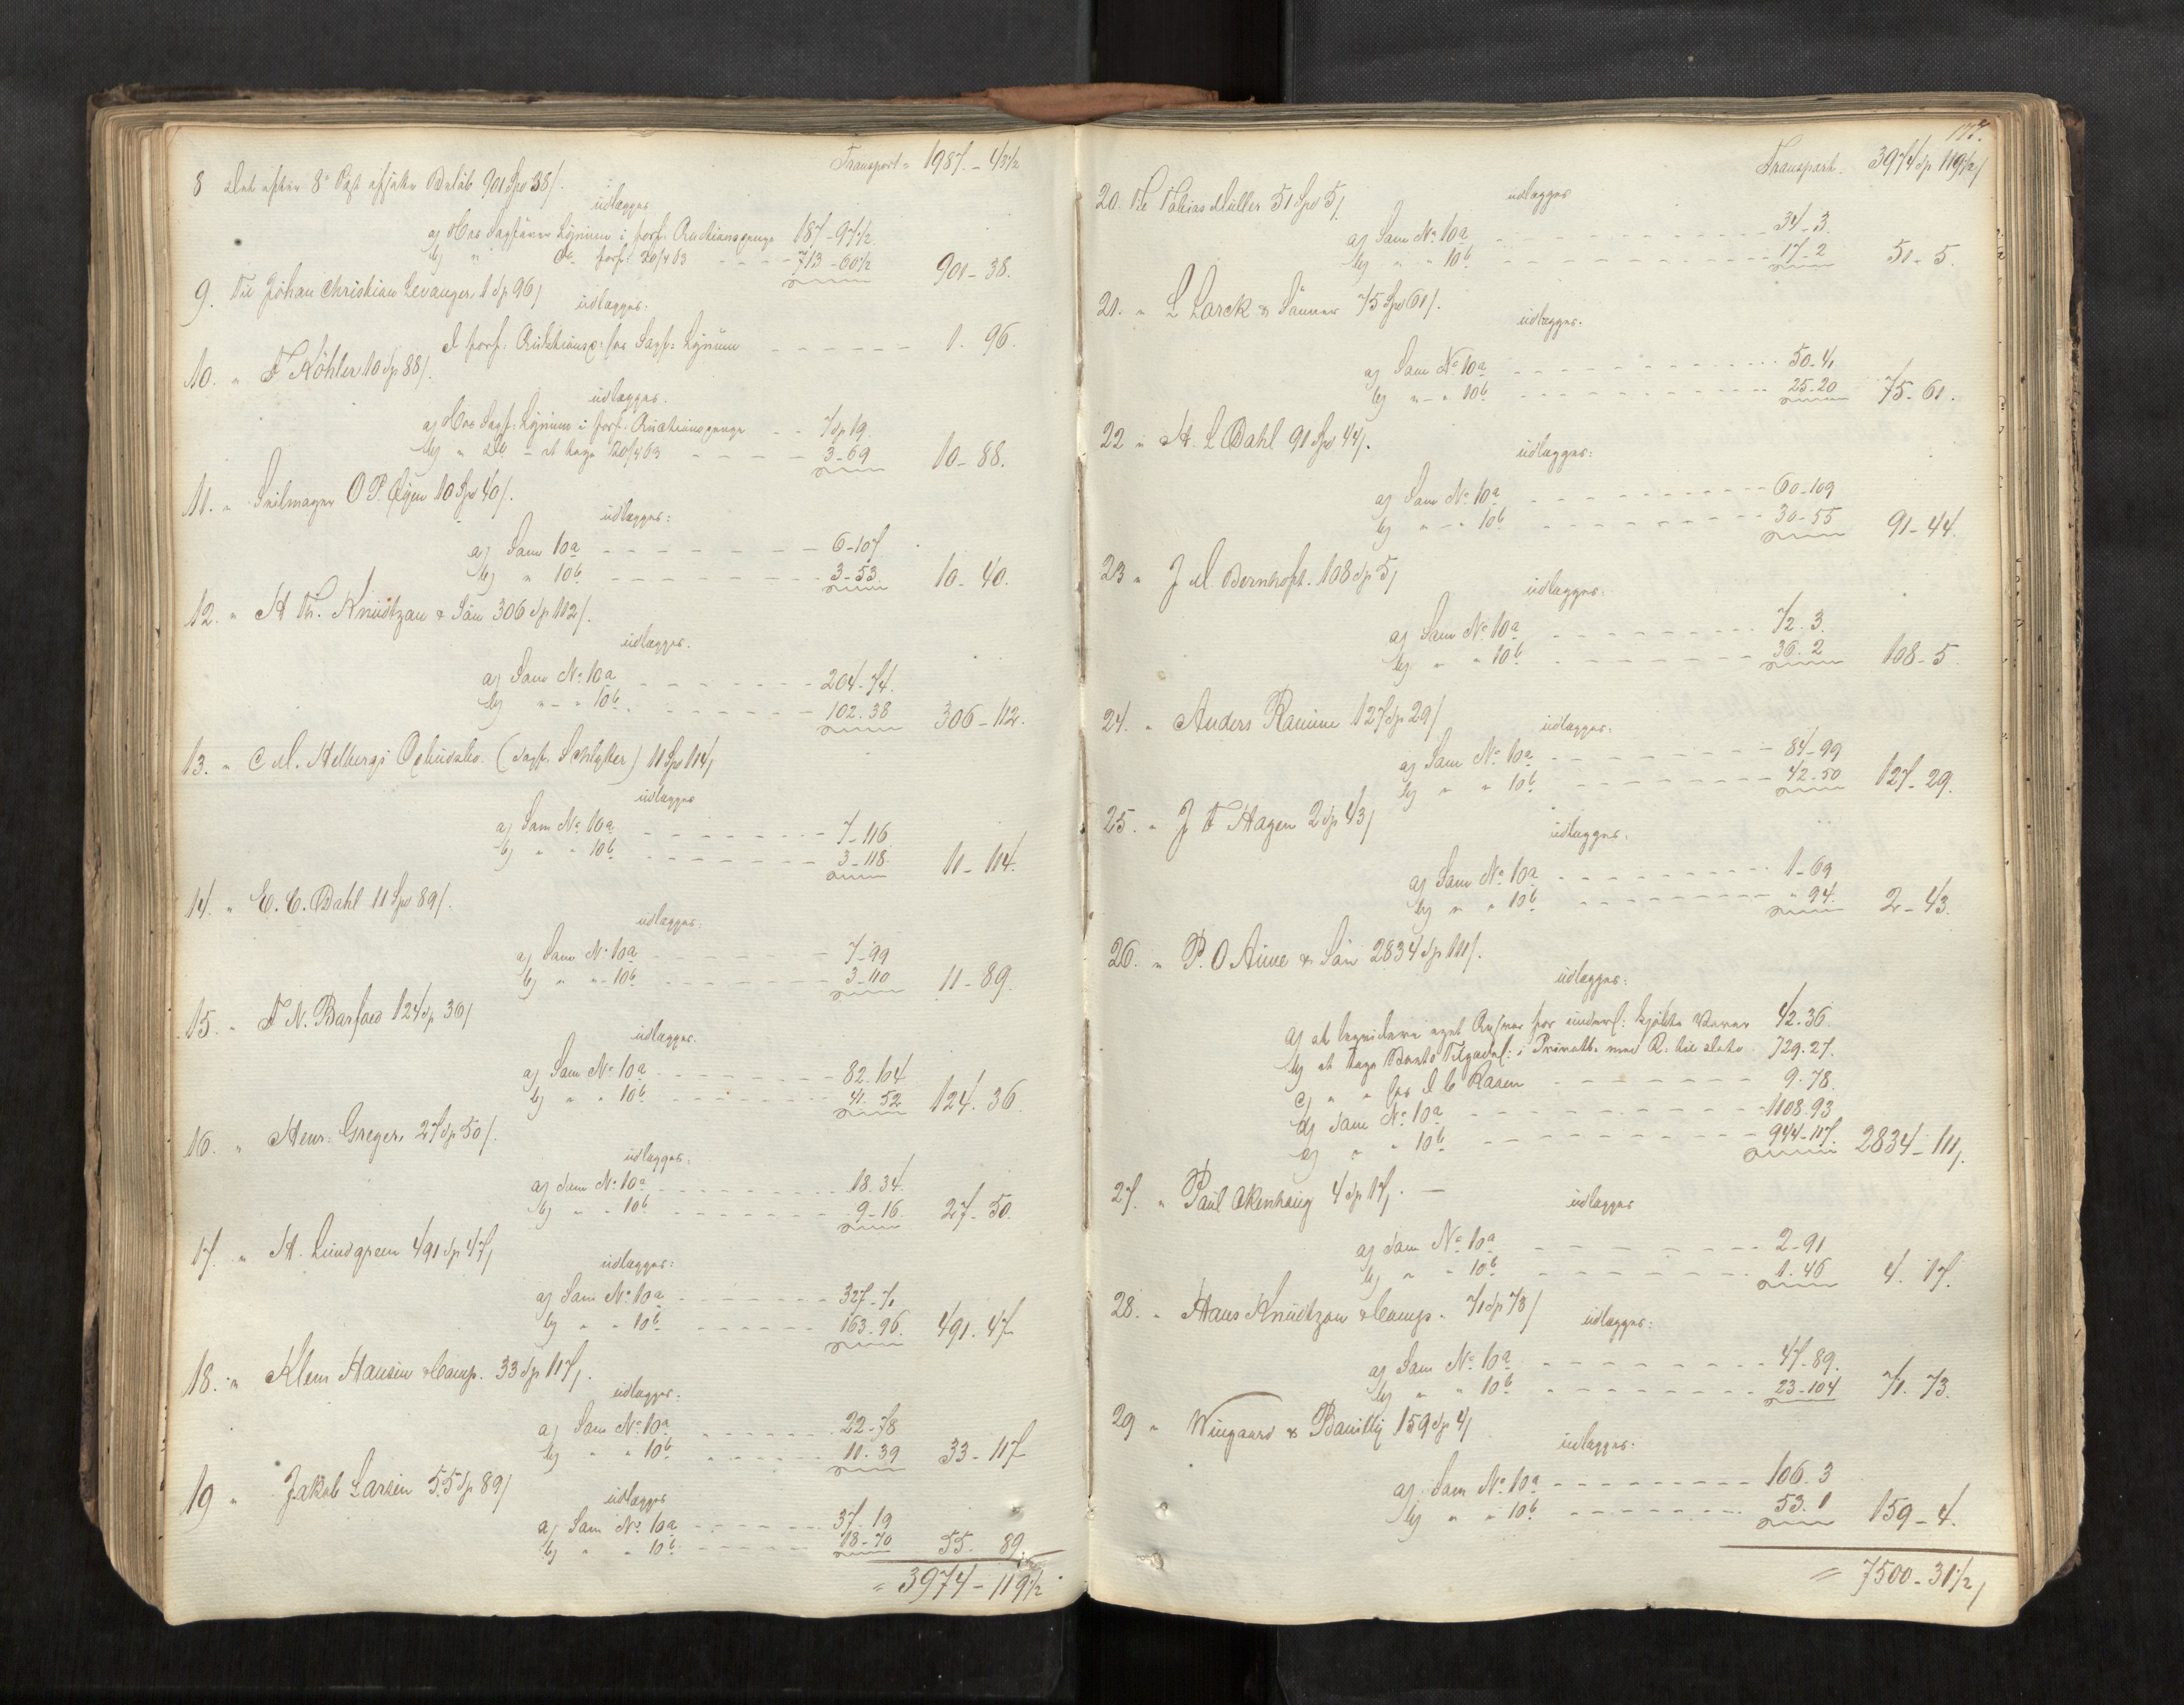 Transport = 1987 - 43 1/2
8 Det efter 8de Post afsatte Beløb 901 Spd 38/.
udlægges
a) Hos Sagfører Lynum i forf: Auctionspenge 187 - 97 1/2
b) " Do forf: 20/4 63 - - - 713 - 60 1/2 901 - 38.
9. Til Johan Christian Levanger 1 Sp 96/
udlægges:
I forf: Auktionsp: hos Sagf: Lynum - - - - - - 1. 96.
10. " F Köhler 10 Sp 88/.
udlægges.
a) Hos Sagf: Lynum i forf: Auctionspenge - - 7 Sp 19.
b) " Do - at tage 20/4 63 - - - - - 3 - 69 10 - 88.
11. " Seilmager O P. Øyen 10 Spd 40/.
udlægges:
a) Som 10a - - - - - - - 6 - 107
b) " 10b - - - - - - - 3 - 53. 10 - 40.
12. " H Th. Knudtzon & Søn 306 Sp 112/.
udlægges.
a) Som No 10a - - - - - - 204 - 74.
b) " - " 10b. - - - - - - 102. 38 306 - 112.
13. " C M. Helbergs Opbudsbo. (Sagf. Schlytter) 11 Spd 114/
udlægges
a) Som No 10a - - - - - - - 7 - 116
b) " " 10b. - - - - - - - 3 - 118. 11 - 114.
14. " E. C. Dahl 11 Spd 89/.
udlægges.
a) Som No 10a - - - - - - 7 - 99
b) " " 10b - - - - - - 3 - 110 11 - 89.
15. " F N. Barfoed 124 Sp 36/
udlægges.
a) Som No 10a - - - - - - - 82. 104
b) " " 10b - - - - - - - 41. 52 124. 36.
16. " Henr: Greger. 27 Sp 50/.
udlægges.
a) Som No 10a - - - - - - - 18. 34.
b) " " 10b. - - - - - - - 9 - 16. 27 - 50.
17. " H. Lundgreen 491 Sp 47/
udlægges:
a) Som No 10a - - - - - - 327 - 71
b) " " 10b. - - - - - - 163. 96. 491. 47
18. " Klem Hansen & Comp. 33 Sp 117/.
udlægges:
a) Som No 10a - - - - - - 22 - 78
b) " " 10b - - - - - - 11. 39 33 - 117
19 " Jakob Larsen 55 Sp 89/
udlægges
a) Som No 10a - - - - - - 37. 19
b) " " 10b - - - - - - 18 - 70 55. 89.
= 3974 - 119 1/2
177.
Transport. 3974 Sp 119 1/2/
20. Til Tobias Müller 51 Spd 5/
udlægges
a) Som No 10a - - - - - - - 34 - 3.
b) " " 10b - - - - - - - 17 - 2 51 - 5.
21. " L Larck & Sønner 75 Spd 61/.
udlægges.
a) Som No 10a - - - - - - - 50 - 41
b) " - " 10b. - - - - - - - 25 - 20 75 - 61.
22 " H. L Dahl 91 Spd 44/.
udlægges:
a) Som No 10a - - - - - - - 60 - 109
b) " - " 10b - - - - - - - 30 - 55 91 - 44.
23 " J M. Bernhoft. 108 Sp 5/
udlægges.
a) Som No 10a - - - - - - 72. 3.
b) " " 10b. - - - - - - 36. 2 108 - 5.
24. " Anders Ramme 127 Sp 29/
udlægges.
a) Som No 10a - - - - - - 84 - 99
b) " " 10b. - - - - - - 42 - 50 127 - 29.
25. " J F Hagen 2 Sp 43/
udlægges.
a) Som No 10a - - - - - - - 1 - 69
b) " " 10b - - - - - - - " 94. 2 - 43.
26. " P. O Aune & Søn 2834 Sp 111/.
udlægges:
a) at liqvidere eget for underf: kjøbte Varer 42. 36.
b) at tage i Privatb. med R. til 729. 27.
c) " " hos I C Raaen - - - - - - 9. 78.
d) Som No 10a - - - - - - - 1108. 93
e) " " 10b - - - - - - - 944 - 117. 2834 - 111/.
27. " Paul Okenhaug 4 Sp 17/. -
udlægges
a) Som No 10a - - - - - - - 2 - 91
b) " " 10b - - - - - - - 1. 46 4. 17.
28. " Hans Knudtzon & Comp. 71 Sp 73/
udlægges:
a) Som No 10a - - - - - - - 47 - 89.
b) " " 10b - - - - - - - 23 - 104 71. 73.
29 " Wingaard & 159 Sp 4/
udlægges:
a) Som No 10a - - - - - - - 106. 3
b) " " 10b - - - - - - - 53. 1 159 - 4.
= 7500 - 31 1/2/